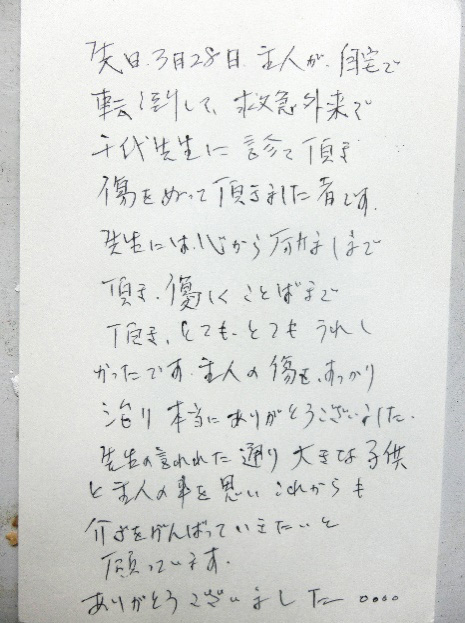 先日、3月28日、主人が、自宅で
転倒して、救急外来で
千代先生に診て頂き
傷をぬって頂きました者です。
先生には、心から はげましまで
頂き、優しくことばまで
頂き、とても、とてもうれし
かったです。主人の傷も、すっかり
治り本当にありがとうございました。
先生の言われた通り大きな子供
と主人の事を思いこれからも
介ごをがんばっていきたいと
願っています。
ありがとうございました 。。。。